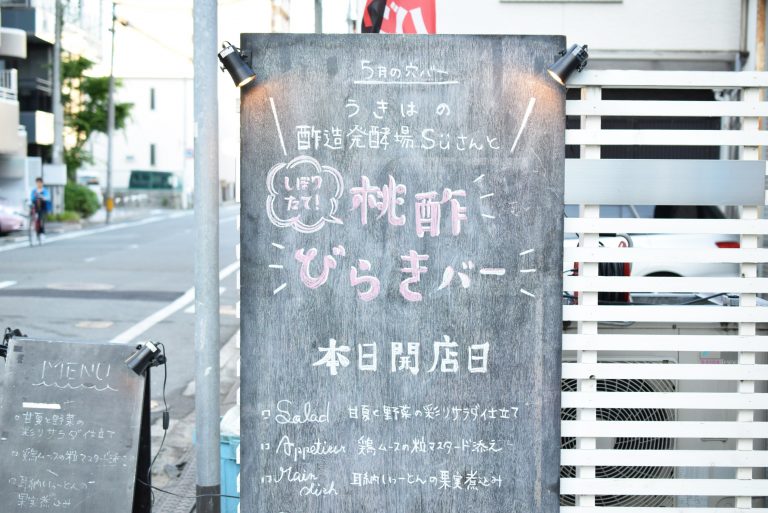 5月の穴バー
うきはの
酢造発酵場Süさんと
しぼり
たて!
桃酢
びらきバー
本日開店日
Salad 甘夏と野菜の彩りサラダ仕立て
Appetizer 鶏ムースの粒マスタード添え
Main
dish 耳納いっとんの果実煮込み
MENU
甘夏と野菜の
彩りサラダ仕立て
鶏ムースの粒マスタード添え
耳納いっとんの
果実煮込み